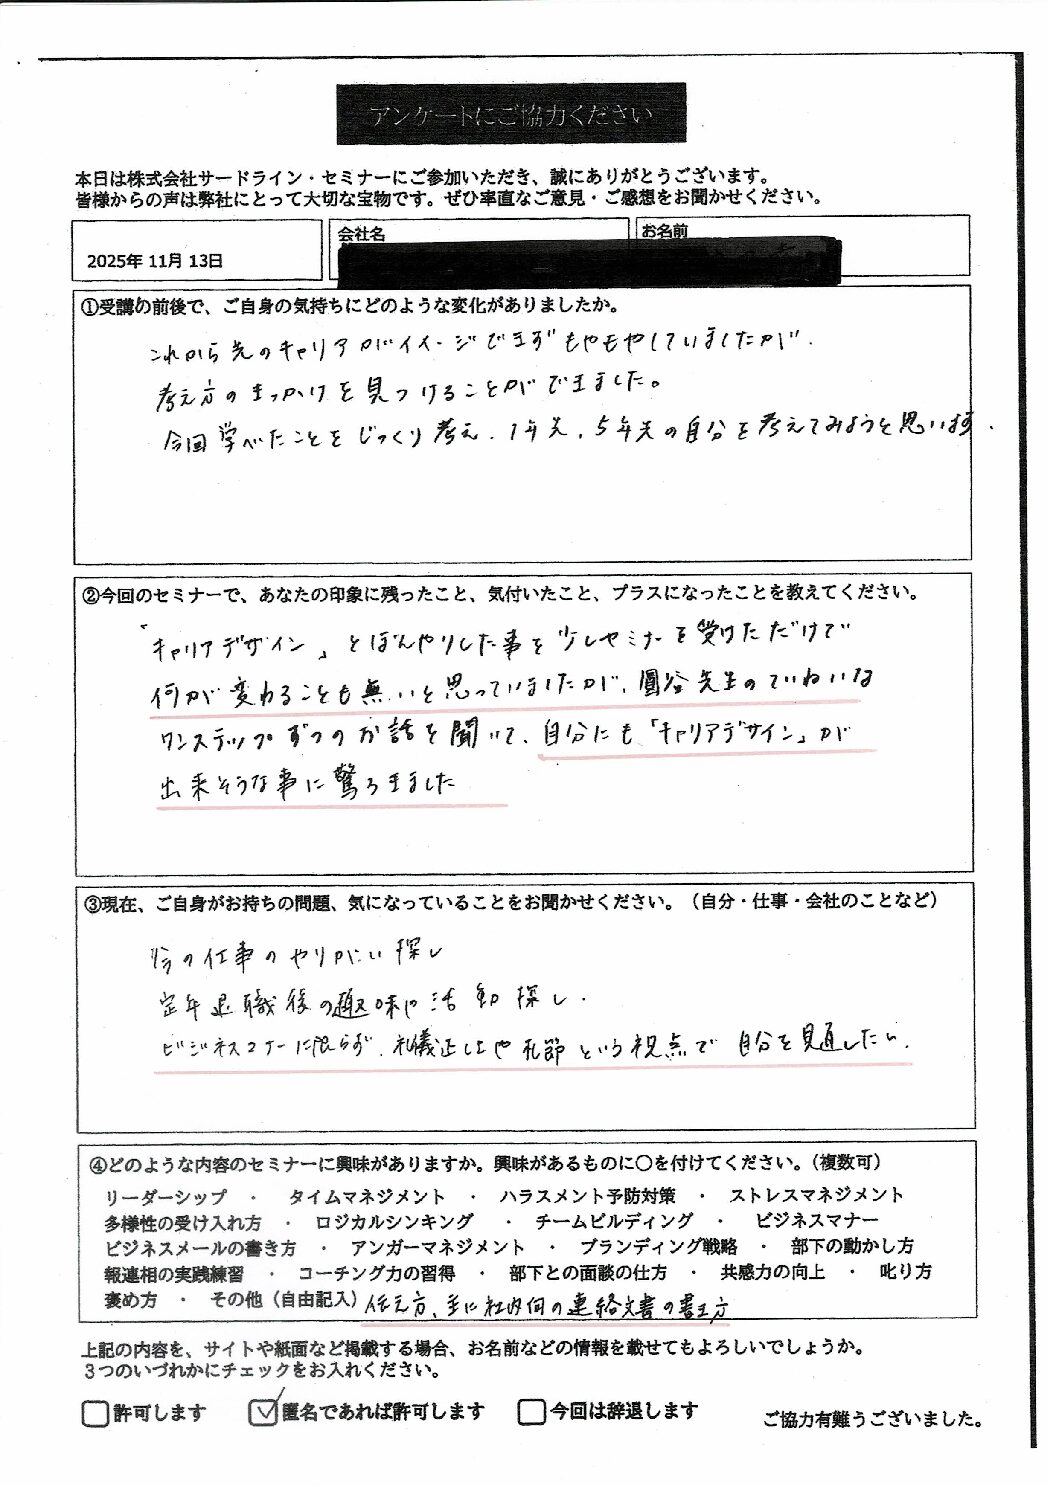 アンケートにご協力ください
本日は株式会社サードライン・セミナーにご参加いただき、誠にありがとうございます。
皆様からの声は弊社にとって大切な宝物です。ぜひ率直なご意見・ご感想をお聞かせください。
2025年 11月 13日
会社名
お名前
①受講の前後で、ご自身の気持ちにどのような変化がありましたか。
これから先のキャリアがイメージできずもやもやしていましたが、
考え方のきっかけを見つけることができました。
今回学べたことをじっくり考え、1年先、5年先の自分を考えてみようと思います。
②今回のセミナーで、あなたの印象に残ったこと、気付いたこと、プラスになったことを教えてください。
「キャリアデザイン」とぼんやりした事を少しセミナーを受けただけで
何かが変わることも無いと思っていましたが、圓谷先生のていねいな
ワンステップずつのお話を聞いて、自分にも「キャリアデザイン」が
出来そうな事に驚ろきました
③現在、ご自身がお持ちの問題、気になっていることをお聞かせください。（自分・仕事・会社のことなど）
今の仕事のやりがい探し
定年退職後の趣味や活動探し.
ビジネスマナーに限らず、礼儀正しさや礼節という視点で自分を見直したい.
④どのような内容のセミナーに興味がありますか。興味があるものに〇を付けてください。（複数可）
リーダーシップ ・ タイムマネジメント ・ ハラスメント予防対策 ・ ストレスマネジメント
多様性の受け入れ方 ・ ロジカルシンキング ・ チームビルディング ・ ビジネスマナー
ビジネスメールの書き方 ・ アンガーマネジメント ・ ブランディング戦略 ・ 部下の動かし方
報連相の実践練習 ・ コーチング力の習得 ・ 部下との面談の仕方 ・ 共感力の向上 ・ 叱り方
褒め方 ・ その他（自由記入）伝え方、主に社内向の連絡文書の書き方
上記の内容を、サイトや紙面など掲載する場合、お名前などの情報を載せてもよろしいでしょうか。
３つのいづれかにチェックをお入れください。
許可します 匿名であれば許可します 今回は辞退します ご協力有難うございました。